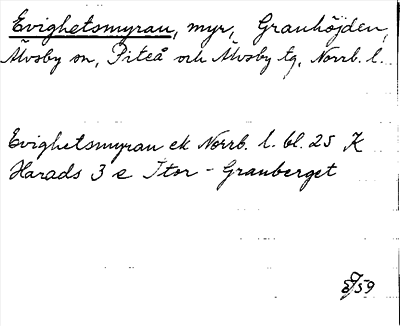 Evighetsmyran, myr, Granhöjden,
Älvsby sn, Piteå och Älvsby tg, Norrb. l.
Evighetsmyran ek Norrb. l. bl. 25 K
Harads 3 e Stor-Granberget
59